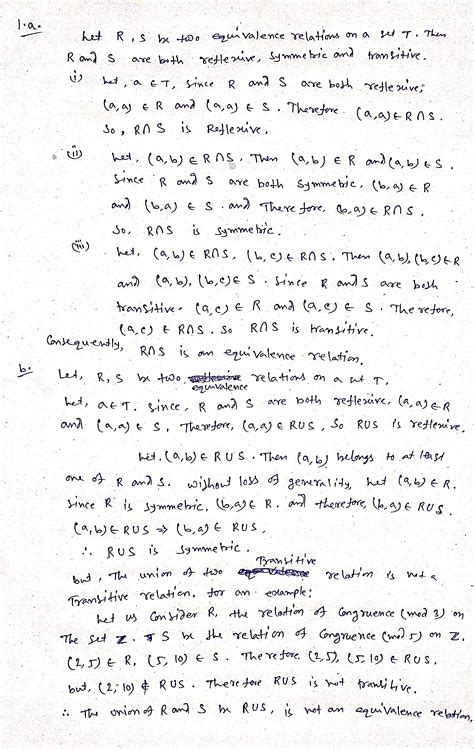 1.a.
Let R, S be two equivalence relations on a set T. Then
R and S are both reflexive, symmetric and transitive.
i) Let, a ∈ T, since R and S are both reflexive;
(a,a) ∈ R and (a,a) ∈ S. Therefore (a,a) ∈ R∩S.
So, R∩S is Reflexive.
(ii) Let, (a,b) ∈ R∩S. Then (a,b) ∈ R and (a,b) ∈ S.
Since R and S are both symmetric, (b,a) ∈ R
and (b,a) ∈ S. and Therefore, (b,a) ∈ R∩S.
So, R∩S is symmetric.
(iii) Let, (a,b) ∈ R∩S, (b,c) ∈ R∩S. Then (a,b), (b,c) ∈ R
and (a,b), (b,c) ∈ S. Since R and S are both
transitive. (a,c) ∈ R and (a,c) ∈ S. Therefore,
(a,c) ∈ R∩S. So R∩S is transitive.
Consequently, R∩S is an equivalence relation.
b. Let, R, S be two relations on a set T.
equivalence
Let, a∈T. Since, R and S are both reflexive, (a,a) ∈ R
and (a,a) ∈ S, Therefore, (a,a) ∈ RUS, So RUS is reflexive.
Let, (a,b) ∈ RUS. Then (a,b) belongs to at least
one of R and S. Without loss of generality, Let (a,b) ∈ R.
Since R is symmetric, (b,a) ∈ R. and therefore, (b,a) ∈ RUS.
(a,b) ∈ RUS ⇒ (b,a) ∈ RUS.
∴ RUS is symmetric.
Transitive
but, The union of two relation is not a
Transitive relation, for an example;
Let us consider R, the relation of congruence (mod 3) on
The set Z. S be the relation of congruence (mod 5) on Z.
(2,5) ∈ R, (5,10) ∈ S. Therefore, (2,5), (5,10) ∈ RUS.
but, (2,10) ∉ RUS. Therefore RUS is not transitive.
∴ The union of R and S be RUS, is not an equivalence relation.